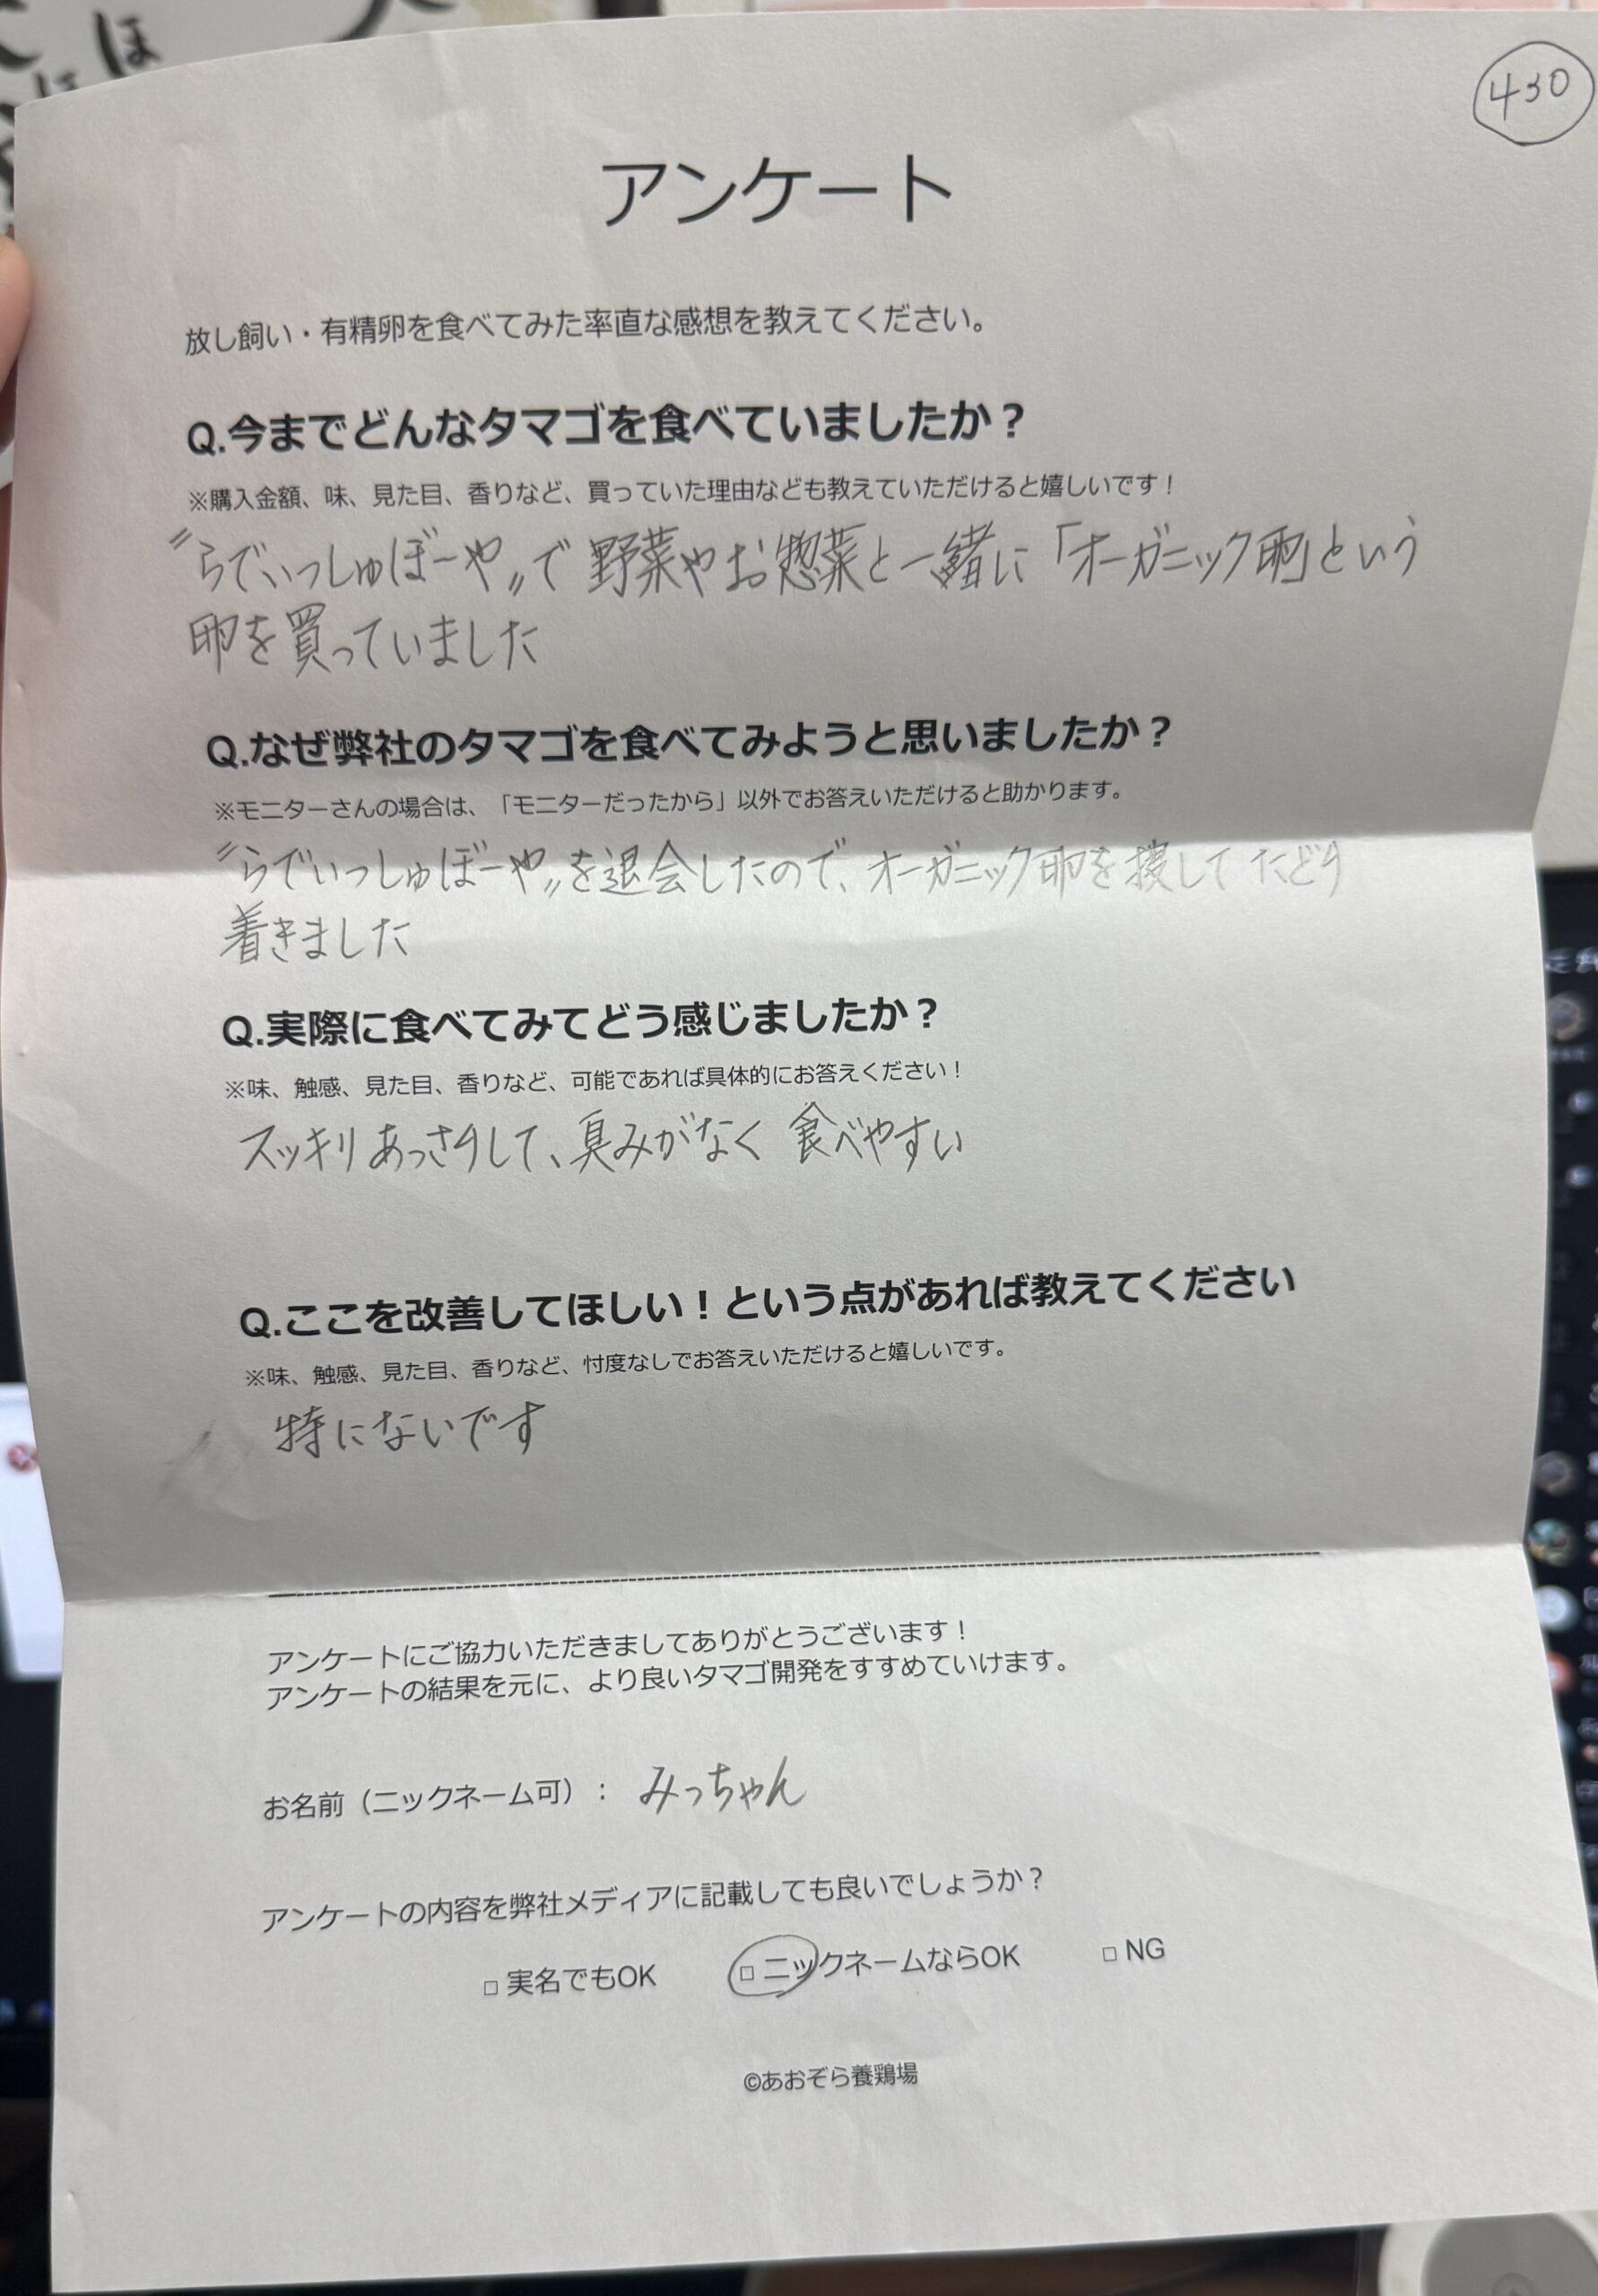 430
アンケート
放し飼い・有精卵を食べてみた率直な感想を教えてください。
Q.今までどんなタマゴを食べていましたか？
※購入金額、味、見た目、香りなど、買っていた理由なども教えていただけると嬉しいです！
〝らでぃっしゅぼーや〟で 野菜やお惣菜と一緒に「オーガニック卵」という
卵を買っていました
Q.なぜ弊社のタマゴを食べてみようと思いましたか？
※モニターさんの場合は、「モニターだったから」以外でお答えいただけると助かります。
〝らでぃっしゅぼーや〟を退会したので、オーガニック卵を捜して たどり
着きました
Q.実際に食べてみてどう感じましたか？
※味、触感、見た目、香りなど、可能であれば具体的にお答えください！
スッキリ あっさりして、臭みがなく 食べやすい
Q.ここを改善してほしい！という点があれば教えてください
※味、触感、見た目、香りなど、忖度なしでお答えいただけると嬉しいです。
特にないです
アンケートにご協力いただきましてありがとうございます！
アンケートの結果を元に、より良いタマゴ開発をすすめていけます。
お名前（ニックネーム可）： みっちゃん
アンケートの内容を弊社メディアに記載しても良いでしょうか？
□ 実名でもOK □ ニックネームならOK □ NG
©あおぞら養鶏場